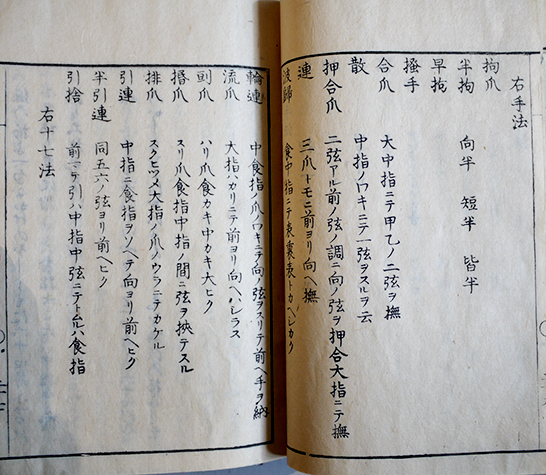 右手法
拘爪
半拘 向半 短半 皆半
早拘
掻手
合爪 大中指ニテ甲乙ノ二弦ヲ撫
散 中指ノワキニテ一弦ヲスルヲ云
押合爪 二弦アル前ノ弦ノ調ニ向ノ弦ヲ押合大指ニテ撫
連 三爪トモニ前ヨリ向ヘ撫
波歸 食中指ニテ表裏表トカヘシカク
輪連 中食指ノ爪ワキニテ向ノ弦ヲスリテ前ヘ手ヲ納
流爪 大指バカリニテ前ヨリ向ヘハシラス
爪 ハリ爪食カキ中カキ大ヒク
爪 スリ爪食指中指ノ間ニ弦ヲ挾テスル
排爪 スクヒツメ大指ノ爪ノウラニテカケル
引連 中指ニ食指ヲソヘテ向ヨリ前ヘヒク
半引連 同五六ノ弦ヨリ前ヘヒク
引捨 前マデ引ハ中指中弦ニテトムルハ食指
右十七法